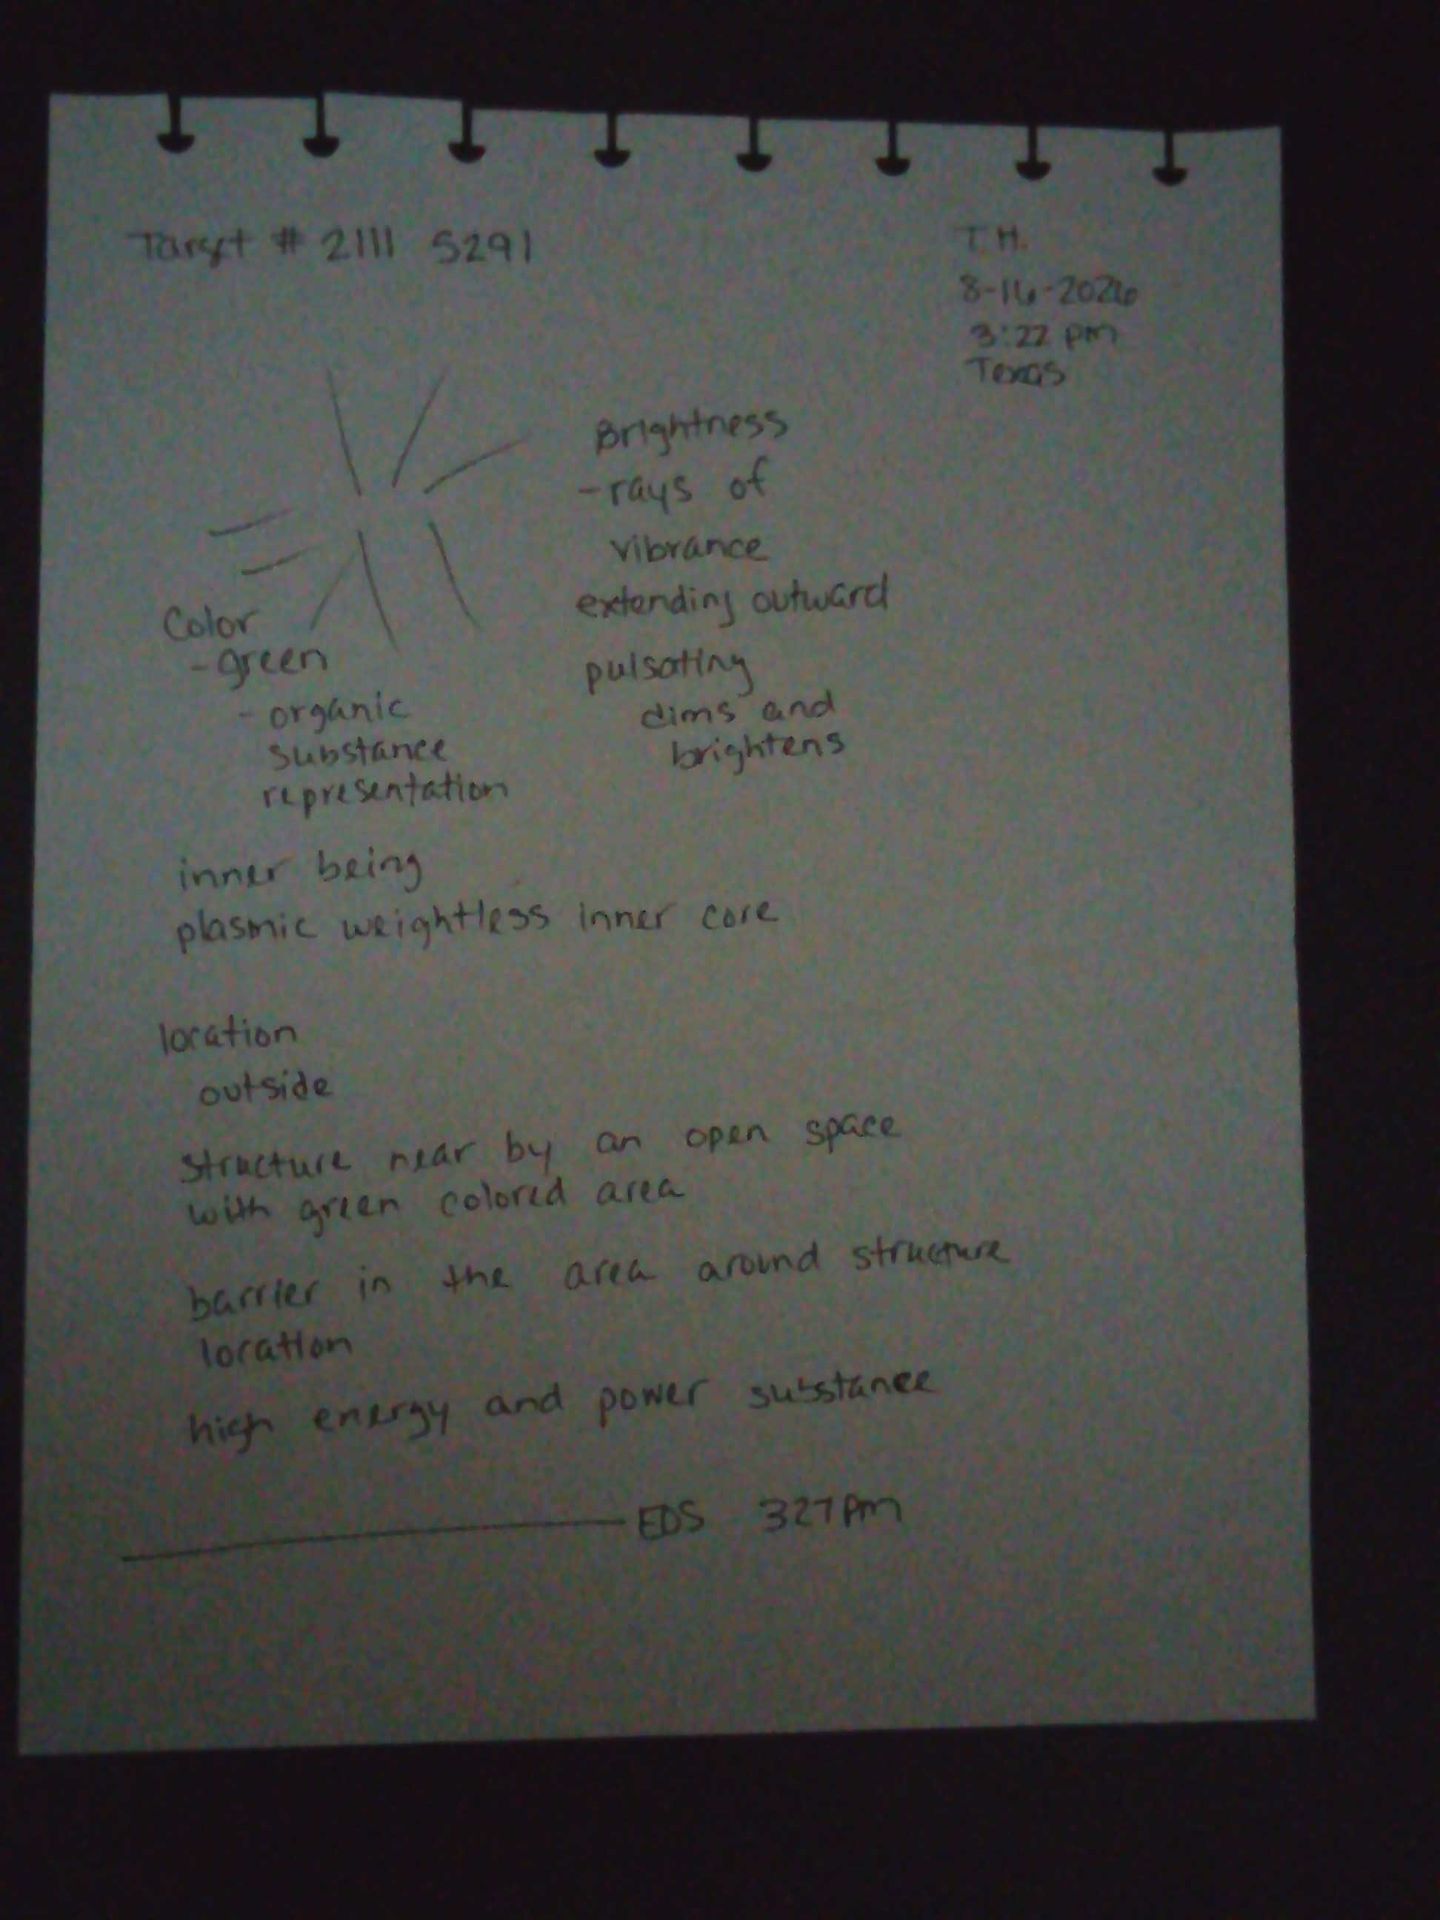 Target # 2111 5291
T.H.
8-16-2026
3:22 pm
Texas
Brightness
- rays of
vibrance
extending outward
pulsating
dims and
brightens
Color
- green
- organic
substance
representation
inner being
plasmic weightless inner core
location
outside
structure near by an open space
with green colored area
barrier in the area around structure
location
high energy and power substance
EDS 327pm